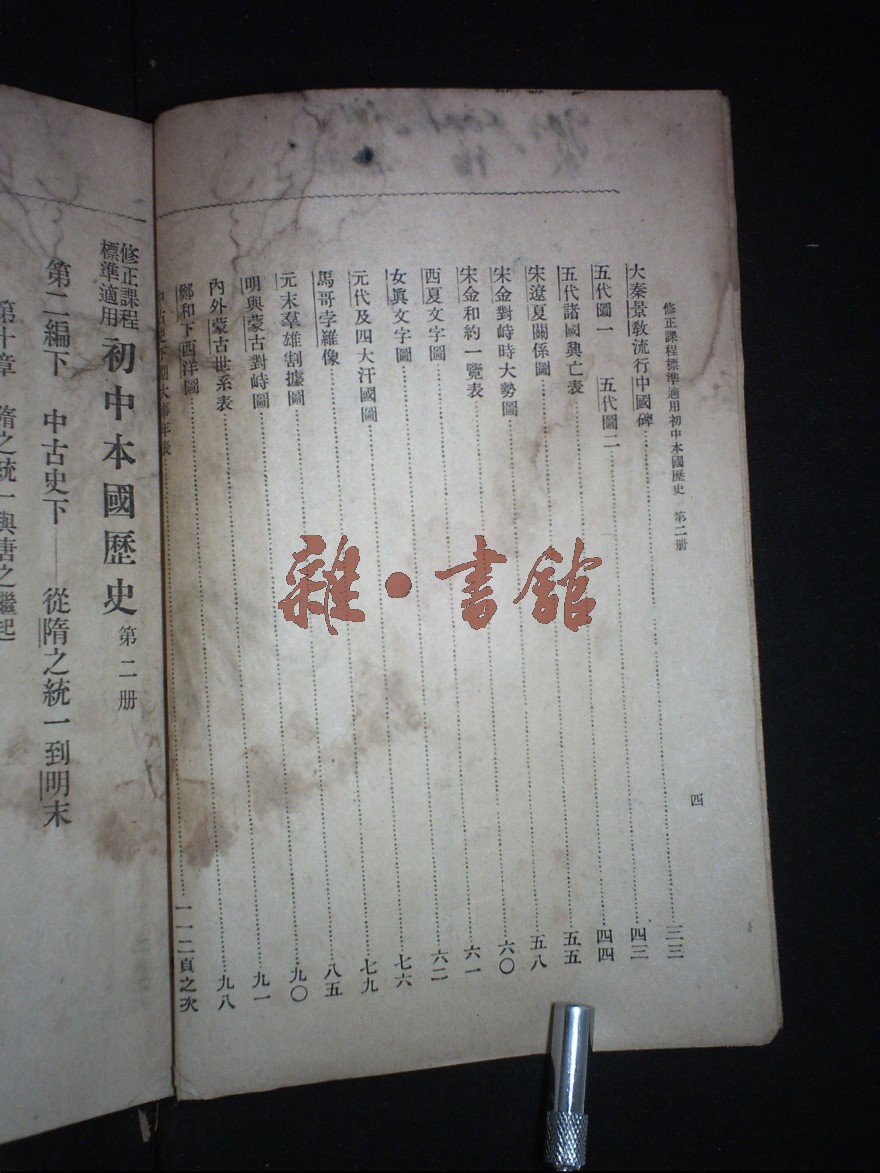 修正課程標準適用初中本國歷史 第二册 四
大秦景教流行中國碑……三三
五代圖一 五代圖二……四三
五代諸國興亡表……四四
宋遼夏關係圖……五五
宋金對峙時大勢圖……五八
宋金和約一覽表……六〇
西夏文字圖……六一
女眞文字圖……六二
元代及四大汗國圖……七六
馬哥孛羅像……七九
元末羣雄割據圖……八五
明與蒙古對峙圖……九〇
內外蒙古世系表……九一
鄭和下西洋圖……九八
中古史下期大事年表……一一二頁之次
修正課程
標準適用
初中本國歷史 第二册
第二編下 中古史下——從隋之統一到明末
第十章 隋之統一與唐之繼起
雜·書館